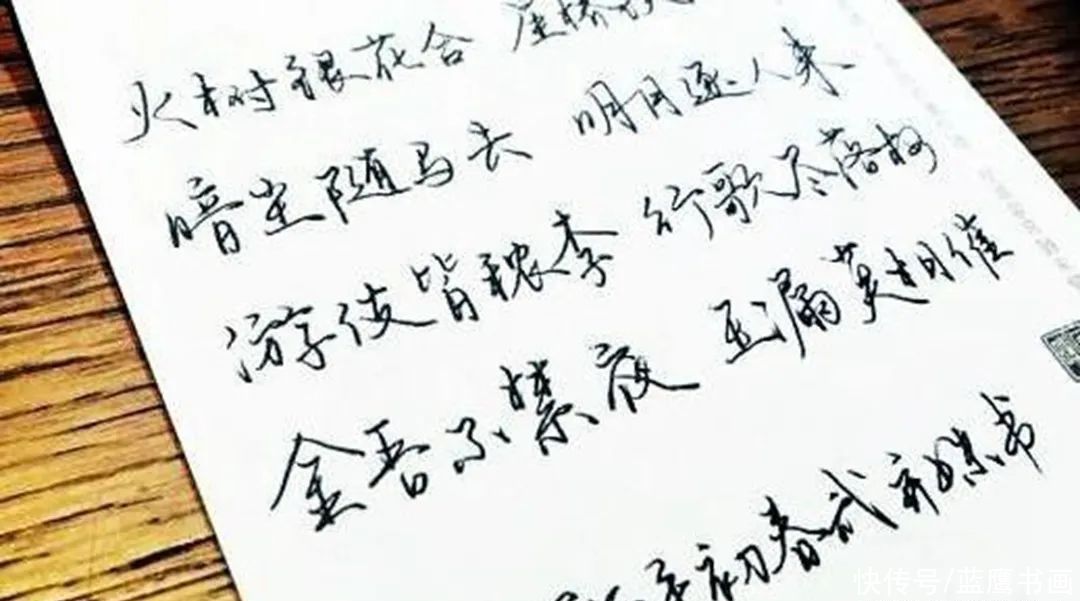 火树银花合 星桥
暗尘随马去 明月逐人来
游伎皆秾李 行歌尽落梅
金吾不禁夜 玉漏莫相催
初春试新书
快传号/蓝鹰书画